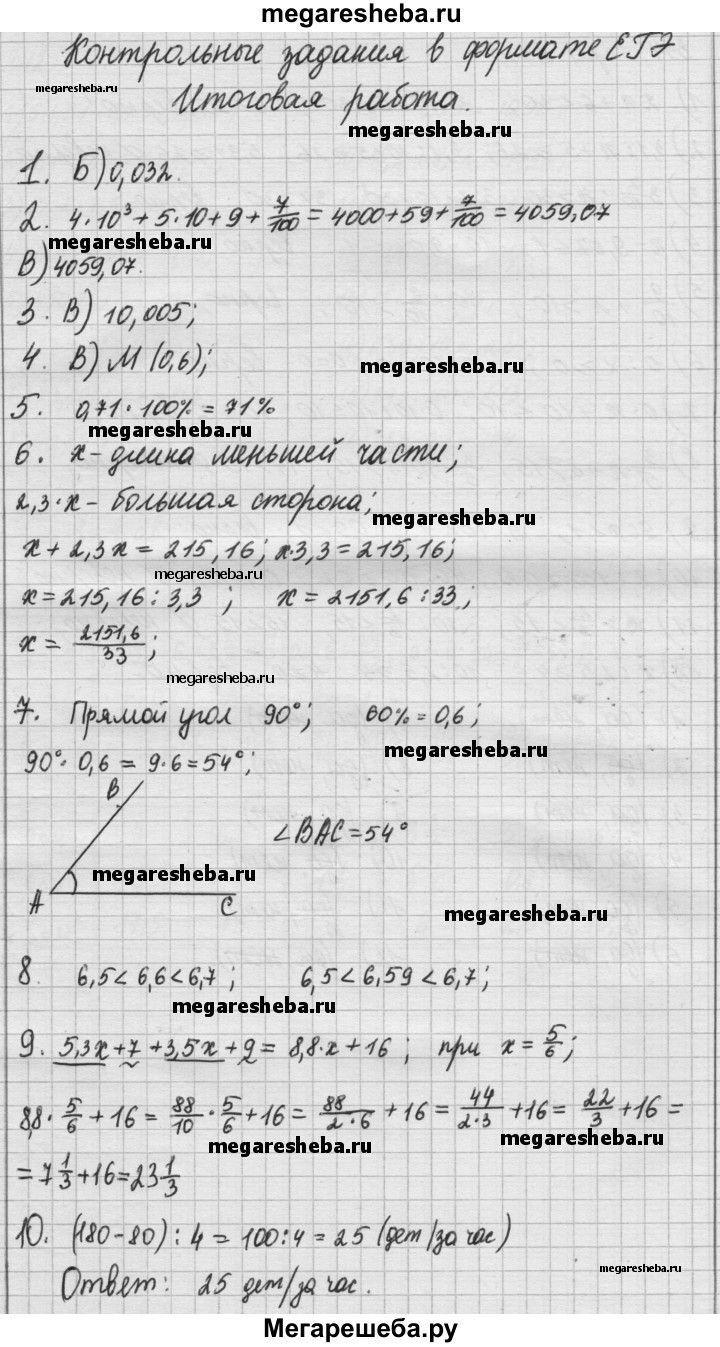 megaresheba.ru
Контрольные задания в формате ЕГЭ
megaresheba.ru
Итоговая работа.
megaresheba.ru
1. Б) 0,032.
2. 4·10³+5·10+9+7/100=4000+59+7/100=4059,07
megaresheba.ru
В) 4059,07.
3. В) 10,005;
4. В) М (0,6);
megaresheba.ru
5. 0,71·100%=71%
megaresheba.ru
6. x-длина меньшей части;
2,3·x- большая сторона;
megaresheba.ru
x+2,3x=215,16; x·3,3=215,16;
megaresheba.ru
x=215,16:3,3; x=2151,6:33;
x=2151,6/33;
megaresheba.ru
7. Прямой угол 90°; 60%=0,6;
megaresheba.ru
90°·0,6=9·6=54°;
В
∠BAC=54°
megaresheba.ru
А С
megaresheba.ru
8. 6,5<6,6<6,7; 6,5<6,59<6,7;
megaresheba.ru
9. 5,3x+7+3,5x+9=8,8·x+16; при x=5/6;
8,8·5/6+16=88/10·5/6+16=88/2·6+16=44/2·3+16=22/3+16=
megaresheba.ru
megaresheba.ru
=7 1/3+16=23 1/3
10. (180-80):4=100:4=25 (дет/за час)
Ответ: 25 дет/за час.
megaresheba.ru
Мегарешеба.ру